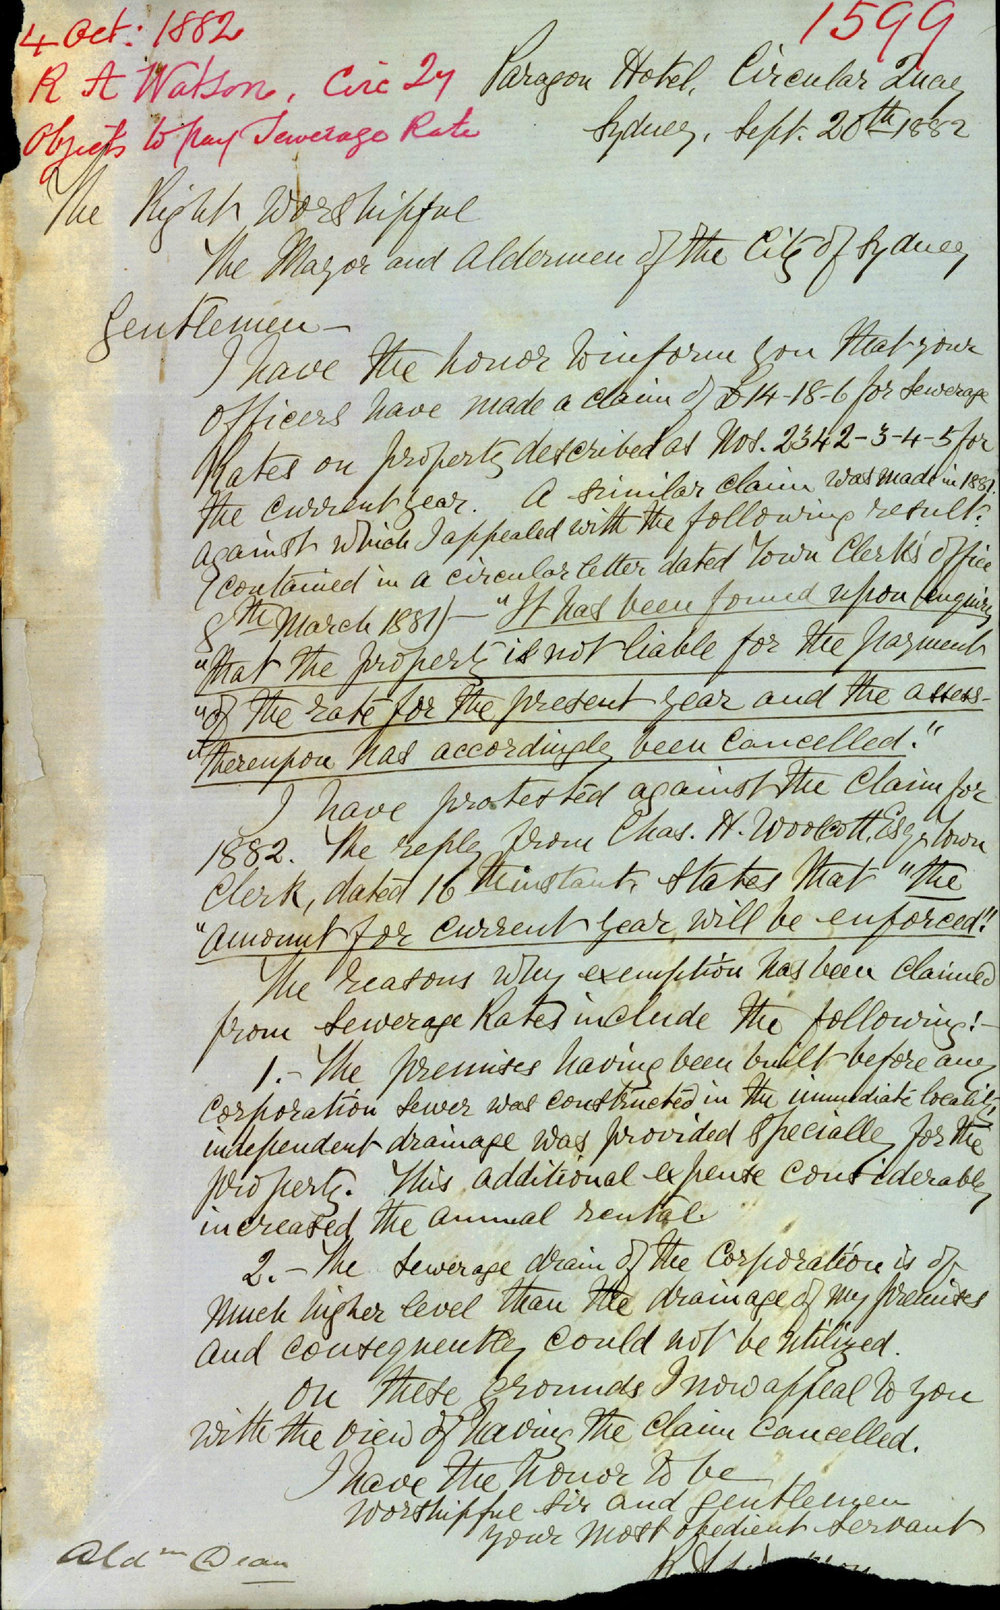 4 Oct: 1882
1599
R A Watson, Circ Qy
Objects to pay Sewerage Rate
Paragon Hotel, Circular Quay
Sydney, Sept. 20th 1882
The Right Worshipful
The Mayor and Aldermen of the City of Sydney
Gentlemen —
I have the honor to inform you that your
officers have made a claim of £14-18-6 for Sewerage
Rates on property described as Nos. 2342-3-4-5 for
the current year. A similar claim was made in 1881.
against which I appealed with the following result:
(contained in a circular letter dated Town Clerk's office
8th March 1881) — "It has been found upon enquiry
"that the property is not liable for the payment
"of the rate for the present year and the assess-
"thereupon has accordingly been cancelled."
I have protested against the claim for
1882. The reply from Chas. H. Woolcott, Esq, Town
Clerk, dated 16th instant, states that "the
"amount for current year will be enforced."
The reasons why exemption has been claimed
from Sewerage Rates include the following:—
1.— The premises having been built before any
corporation sewer was constructed in the immediate locality,
independent drainage was provided specially for the
property. This additional expense considerably
increased the annual rental.
2.— The sewerage drain of the Corporation is of
much higher level than the drainage of my premises
and consequently could not be utilized.
On these grounds I now appeal to you
with the view of having the claim cancelled.
I have the honor to be
Worshipful Sir and Gentlemen
your most obedient servant
Aldmn Dean